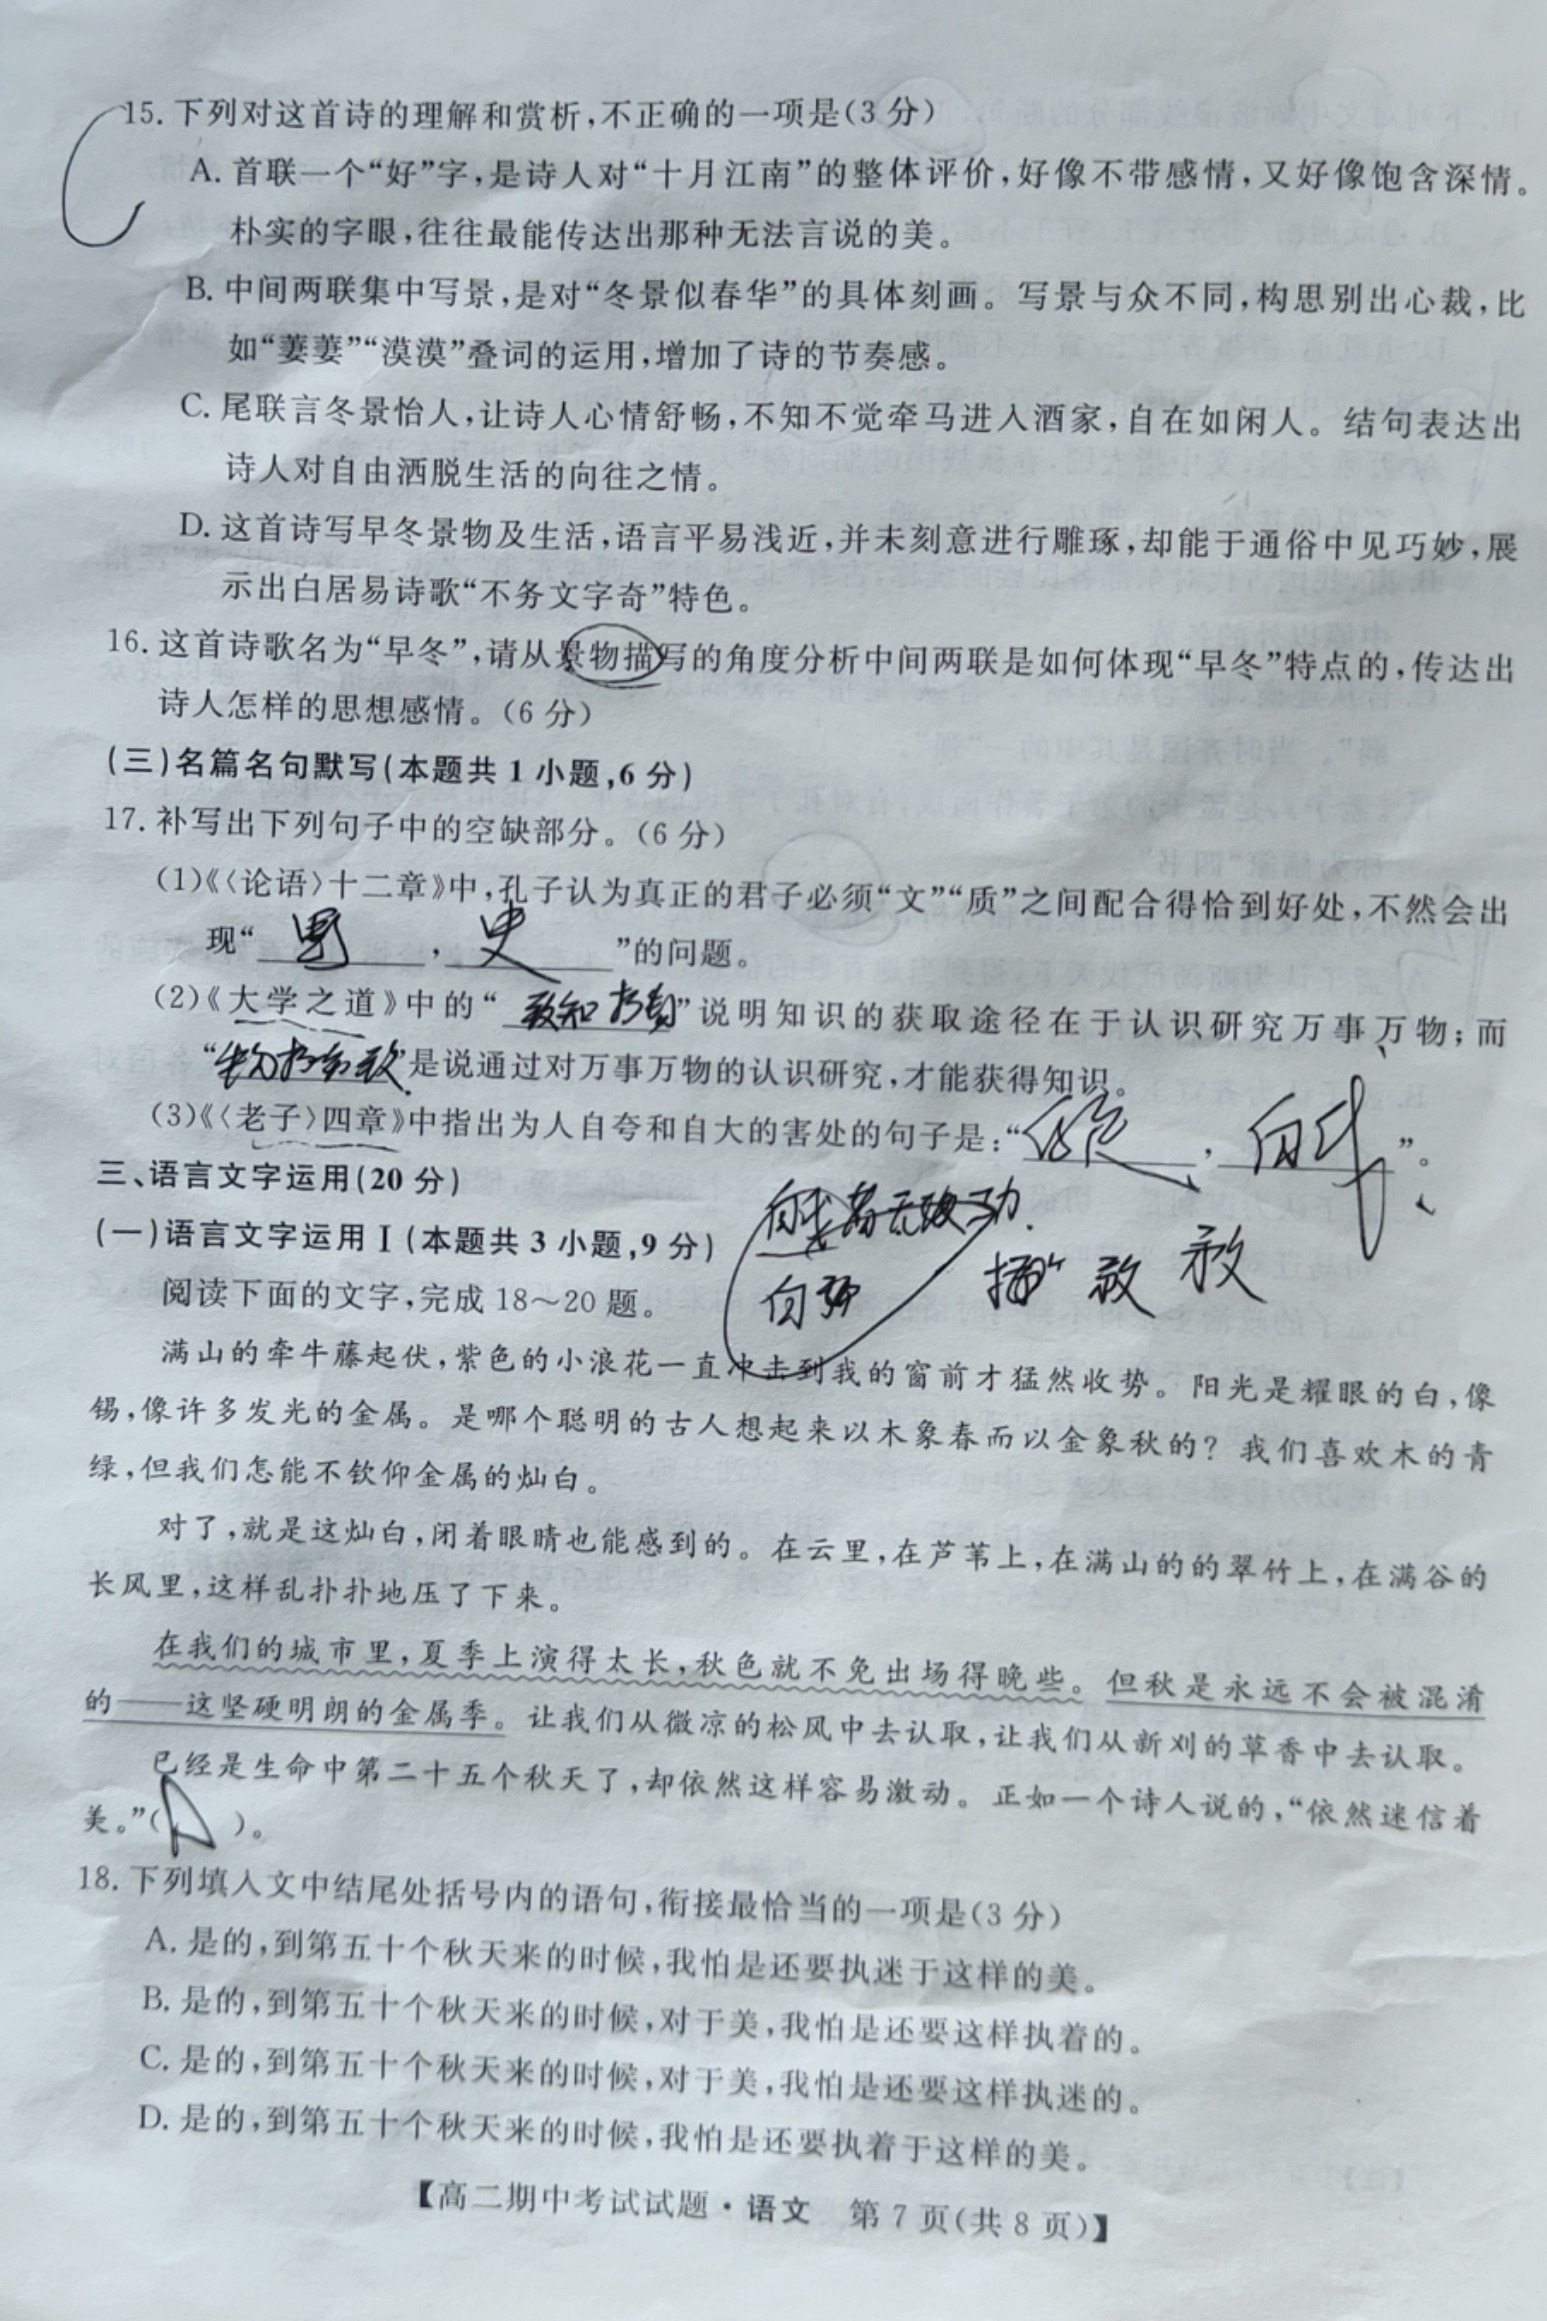 15. 下列对这首诗的理解和赏析,不正确的一项是(3分)
A. 首联一个“好”字,是诗人对“十月江南”的整体评价,好像不带感情,又好像饱含深情。
朴实的字眼,往往最能传达出那种无法言说的美。
B. 中间两联集中写景,是对“冬景似春华”的具体刻画。写景与众不同,构思别出心裁,比
如“萋萋”“漠漠”叠词的运用,增加了诗的节奏感。
C. 尾联言冬景怡人,让诗人心情舒畅,不知不觉牵马进入酒家,自在如闲人。结句表达出
诗人对自由洒脱生活的向往之情。
D. 这首诗写早冬景物及生活,语言平易浅近,并未刻意进行雕琢,却能于通俗中见巧妙,展
示出白居易诗歌“不务文字奇”特色。
16. 这首诗歌名为“早冬”,请从景物描写的角度分析中间两联是如何体现“早冬”特点的,传达出
诗人怎样的思想感情。(6分)
(三)名篇名句默写(本题共1小题,6分)
17. 补写出下列句子中的空缺部分。(6分)
(1)《〈论语〉十二章》中,孔子认为真正的君子必须“文”“质”之间配合得恰到好处,不然会出
现“ , 史 ”的问题。
(2)《大学之道》中的“致知”说明知识的获取途径在于认识研究万事万物;而
“ ”是说通过对万事万物的认识研究,才能获得知识。
(3)《〈老子〉四章》中指出为人自夸和自大的害处的句子是:“ , 自 ”。
三、语言文字运用(20分)
(一)语言文字运用Ⅰ(本题共3小题,9分)
阅读下面的文字,完成18~20题。
满山的牵牛藤起伏,紫色的小浪花一直冲击到我的窗前才猛然收势。阳光是耀眼的白,像
锡,像许多发光的金属。是哪个聪明的古人想起来以木象春而以金象秋的?我们喜欢木的青
绿,但我们怎能不钦仰金属的灿白。
对了,就是这灿白,闭着眼睛也能感到的。在云里,在芦苇上,在满山的的翠竹上,在满谷的
长风里,这样乱扑扑地压了下来。
在我们的城市里,夏季上演得太长,秋色就不免出场得晚些。但秋是永远不会被混淆
的——这坚硬明朗的金属季。让我们从微凉的松风中去认取,让我们从新刈的草香中去认取。
已经是生命中第二十五个秋天了,却依然这样容易激动。正如一个诗人说的,“依然迷信着
美。”( )。
18. 下列填入文中结尾处括号内的语句,衔接最恰当的一项是(3分)
A. 是的,到第五十个秋天来的时候,我怕是还要执迷于这样的美。
B. 是的,到第五十个秋天来的时候,对于美,我怕是还要这样执着的。
C. 是的,到第五十个秋天来的时候,对于美,我怕是还要这样执迷的。
D. 是的,到第五十个秋天来的时候,我怕是还要执着于这样的美。
【高二期中考试试题·语文 第7页(共8页)】